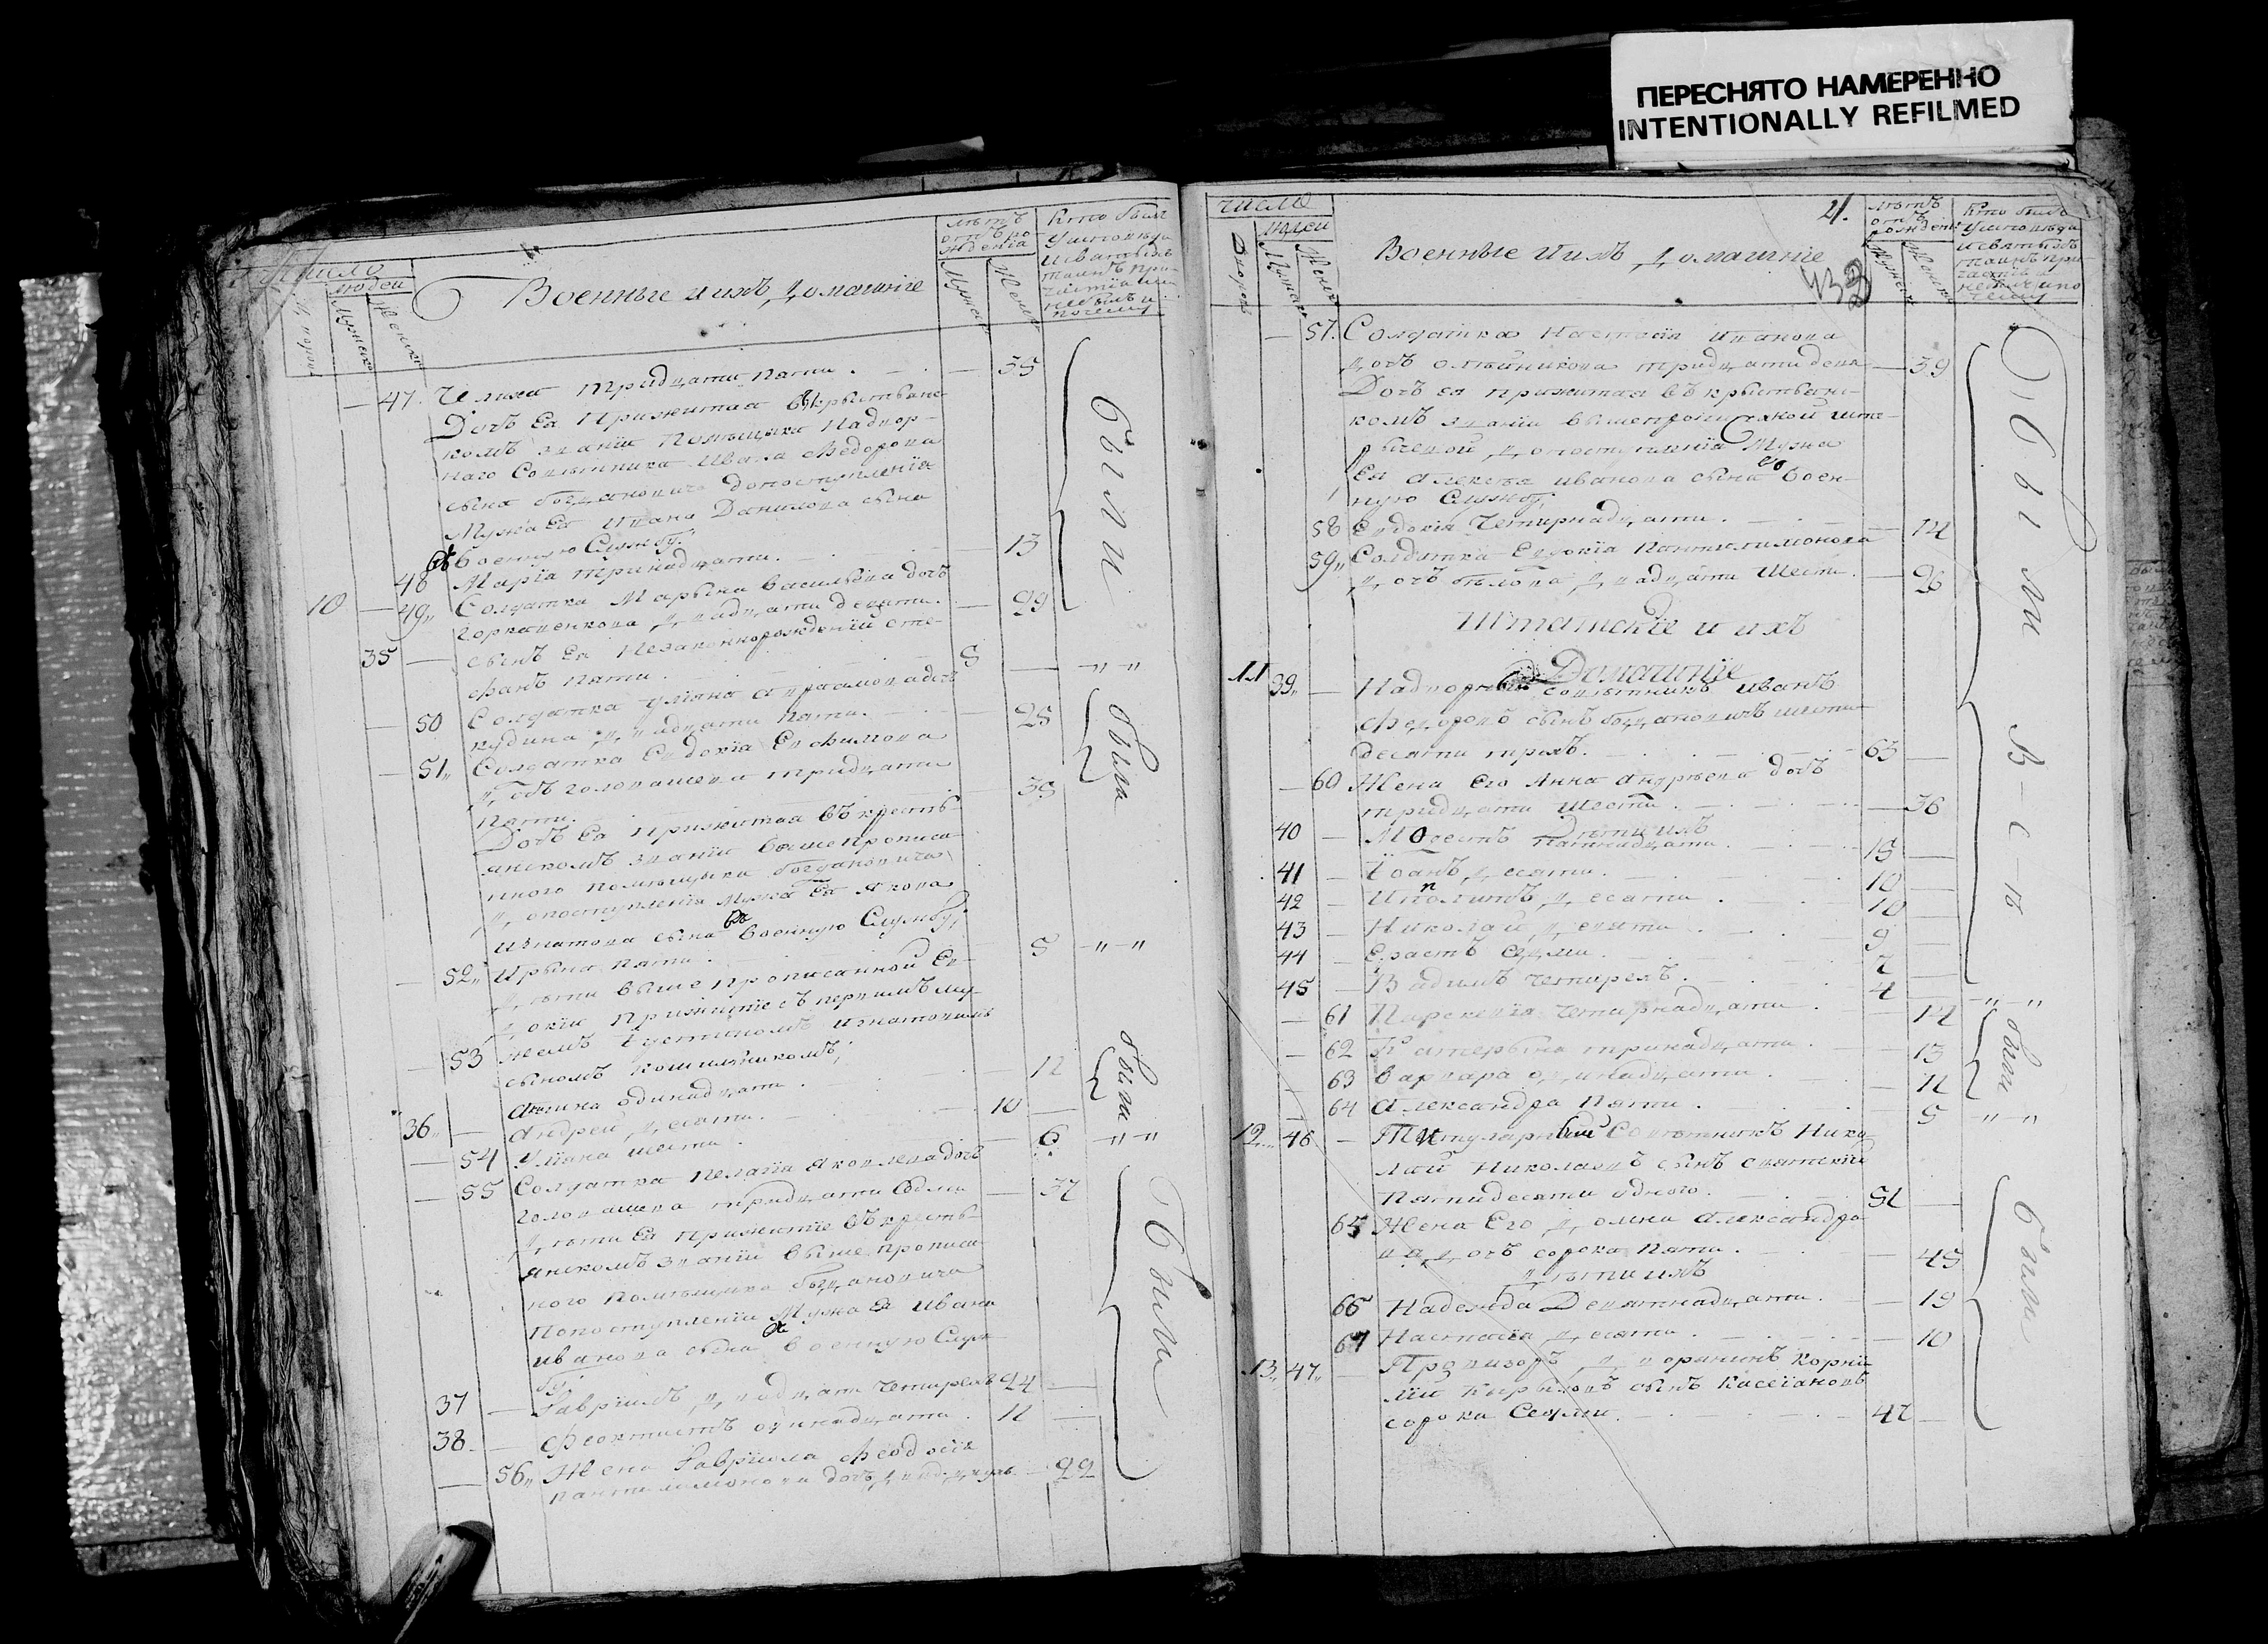 ПЕРЕСНЯТО НАМЕРЕННО
INTENTIONALLY REFILMED
Число
людей
Военные и ихъ Домашніе
лѣтъ
отъ ро-
жденія
Кто былъ
47. тридцати пяти. 35
Дочь Ея Прижитая въ крестьянс-
комъ званіи Помѣщика Надвор-
наго Совѣтника Ивана Федорова
сына Богдановича допоступленія
Мужа Ея Ивана Данилова сына
въ Военную Службу:
48 Марія тринадцати. 13
10 49 Солдатка Марьяна Васильева дочь
двадцати девяти. 29
35 сынъ Ея Незаконнорожденній Сте-
фанъ пяти. 5 „ „
50 Солдатка Уліяна дочь
Кудина двадцати пяти. 25
51 Солдатка Евдокія Ефимова
дочь Головашева тридцати
пяти. 35
Дочь Ея Прижитая въ кресть-
янскомъ званіи вышепрописа-
нного помѣщика Богдановича
допоступленія Мужа Ея Якова
Игнатова сына въ Военную Службу;
52 Ирына пяти. 5 „ „
дѣти выше прописанной Ев-
докіи Прижитіе съ первимъ му-
жемъ Іустиномъ Игнатовимъ
сыномъ
53 одинадцати. 11
36 Андрей десяти. 10
54 Уліяна шести. 6 „ „
55 Солдатка Пелагія Яковлева дочь
Головашева тридцати седми 37
дѣти Ея Прижитіе въ кресть-
янскомъ званіи выше прописа-
ного помѣщика Богдановича
Допоступленія Мужа Ея Ивана
Иванова сына въ военную Служ-
бу:
37 Гавріилъ двадцати четирехъ 24
38 Феоктистъ одинадцати. 11
56 Жена Гавріила Феодосія
Пантелимонова дочь двадц. двухъ 22
были
были
были
Были
число
людей
Дворовъ
Мужеска
Женска
Военные и ихъ Домашніе
21.
432
лѣтъ
отъ
рожденія
Кто былъ
57. Солдатка Настасія Иванова
дочь Олѣйникова тридцати девя 39
Дочь ея прижитая въ крестьянс-
комъ званіи
допоступленія Мужа
Ея Алексѣя Иванова сына во Воен-
ную Службу;
58 Евдокія Четирнадцати. 14
59 Солдатка Евдокія Пантелимонова
дочь Бѣлова двадцати шести. 26
Штатскіе и ихъ
Домашніе
11 39 Надворный Совѣтникъ Иванъ
Федоровъ сынъ Богдановичъ шести-
десяти трехъ. 63
60 Жена Его Анна Андреева дочь
тридцати шести. 36
Дѣти ихъ
40 Модестъ пятнадцати. 15
41 Іоанъ десяти. 10
42 Иполитъ десяти. 10
43 Николай девяти. 9
44 Ерастъ седми. 7
45 Вадимъ четирехъ. 4 „ „
61 Параскевія четирнадцати. 14
62 Катерына тринадцати. 13
63 Варвара одинадцати. 11
64 Александра пяти. 5 „ „
12 46 Титулярный Совѣтникъ Нико-
лай Николаевъ сынъ
пятидесяти одного. 51
65 Жена Его Домна Александро-
ва дочь сорока пяти. 45
Дѣти ихъ
66 Надежда Девятнадцати. 19
67 Настасія десяти. 10
13 47 Провизоръ дворянинъ Корни-
лій сынъ Касеіановъ
сорока Седми. 47
Были
Всѣ
были
были